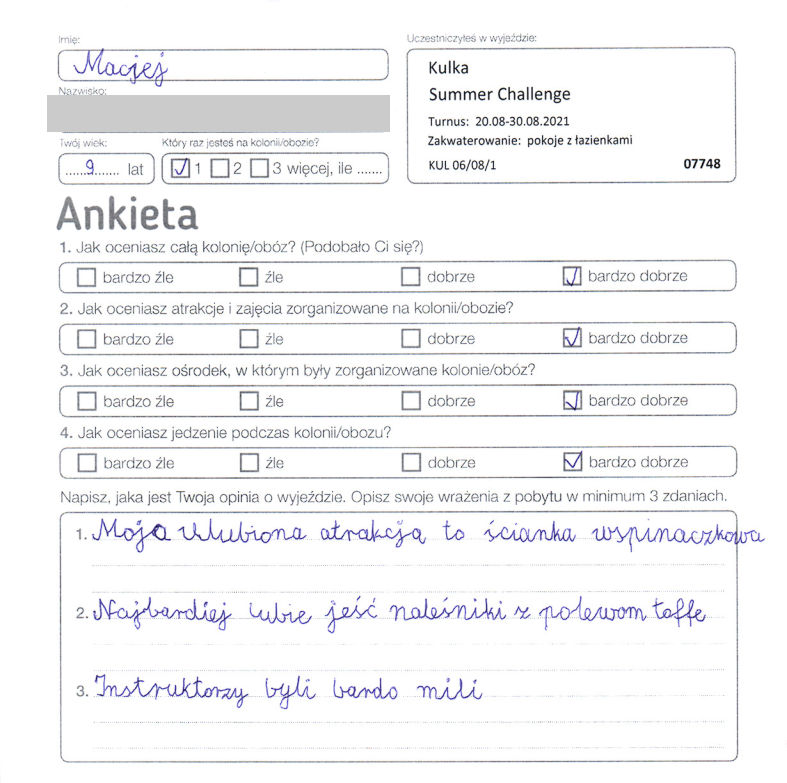 Imię:
Maciej
Nazwisko:
Twój wiek:
9 lat
Który raz jesteś na kolonii/obozie?
1 2 3 więcej, ile .......
Uczestniczyłeś w wyjeździe:
Kulka
Summer Challenge
Turnus: 20.08-30.08.2021
Zakwaterowanie: pokoje z łazienkami
KUL 06/08/1 07748
Ankieta
1. Jak oceniasz całą kolonię/obóz? (Podobało Ci się?)
bardzo źle źle dobrze bardzo dobrze
2. Jak oceniasz atrakcje i zajęcia zorganizowane na kolonii/obozie?
bardzo źle źle dobrze bardzo dobrze
3. Jak oceniasz ośrodek, w którym były zorganizowane kolonie/obóz?
bardzo źle źle dobrze bardzo dobrze
4. Jak oceniasz jedzenie podczas kolonii/obozu?
bardzo źle źle dobrze bardzo dobrze
Napisz, jaka jest Twoja opinia o wyjeździe. Opisz swoje wrażenia z pobytu w minimum 3 zdaniach.
1. Moja ulubiona atrakcją to ścianka wspinaczkowa
2. Najbardiej lubie jeść naleśniki z polewom toffe
3. Instruktorzy byli bardo mili